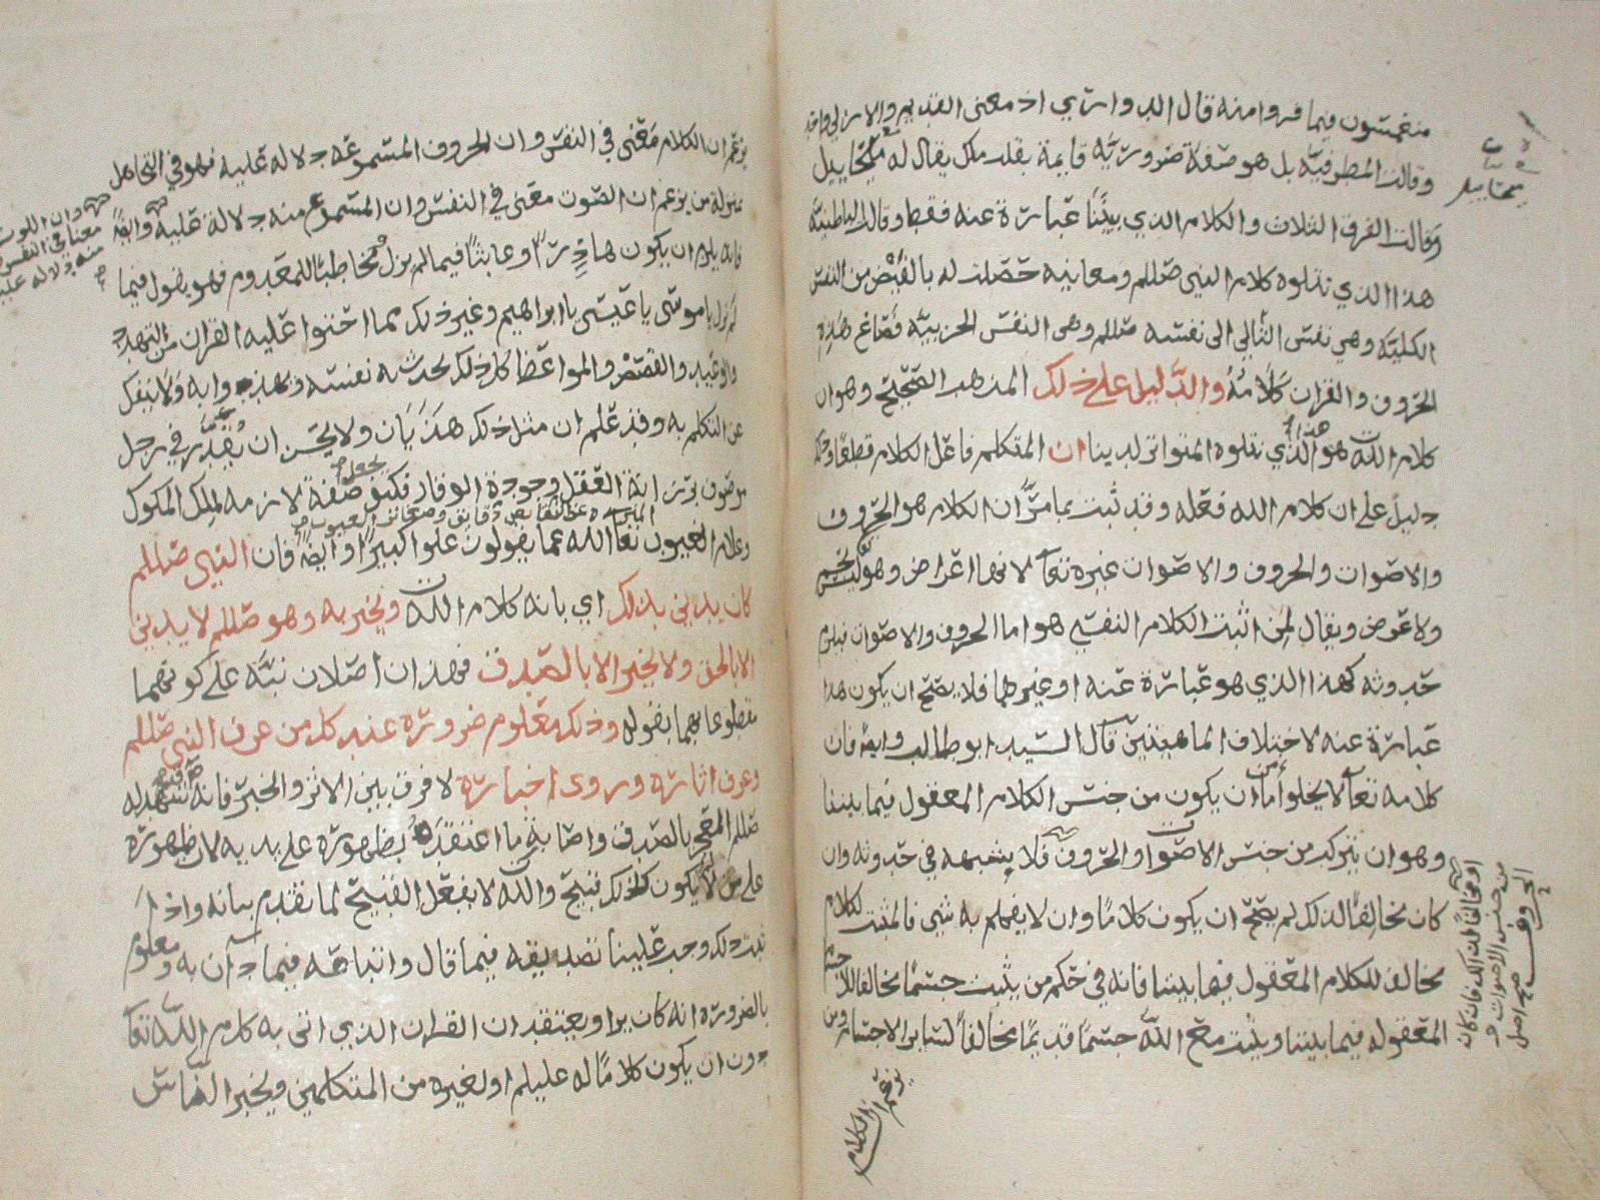 منغمسون فيما فروا منه قال الدواري اذ معنى القديم والازلي واحد
وقالت المطرفية بل هو صفة ضرورية قايمة بقلب ملك يقال له ميخاييل
وقالت الفرق الثلاث والكلام الذي بيننا عبارة عنه فقط وقالت الباطنية
هذا الذي نتلوه كلام النبي صللم ومعانيه حصلت له بالفيض من النفس
الكلية وهي نفس التالي الى نفسه صللم وهي النفس الجزيية فصاغ هذه
الحروف والقران كلامه والدليل على ذلك المذهب الصحيح وهو ان
كلام الله هو هذا الذي نتلوه المتواتر لدينا ان المتكلم فاعل الكلام قطعا
دليل على ان كلام الله فعله وقد ثبت بما مر ان الكلام هو الحروف
والاصوات والحروف والاصوات غيره تعالى لانها اعراض وهو ليس بجسم
ولا عرض ويقال لمن اثبت الكلام النفسي هو اما الحروف والاصوات فيلزم
حدوثه كهذا الذي هو عبارة عنه او غيرهما فلا يصح ان يكون هذا
عبارة عنه لاختلاف الماهيتين قال السيد ابو طالب وايضا فان
كلامه تعالى لا يخلو من اما ان يكون من جنس الكلام المعقول فيما بيننا
وهو ان يتركب من جنس الاصوات والحروف فلا يشبهه في حدوثه وان
كان مخالفا لذلك لم يصح ان يكون كلاما وان لا يفهم به شي فالمثبت لكلام
مخالف للكلام المعقول فيما بيننا فانه في حكم من يثبت جسما مخالفا للاجسام
المعقوله فيما بيننا ويثبت مع الله جسما قديما مخالفا لساير الاجسام ومن
يزعم ان الكلام
ميخاييل
او مخالفا لذلك فان كان
من جنس الاصوات و
الحروف صح اصل
يزعم ان الكلام معنى في النفس وان الحروف المسموعه دلاله عليه فهو في التجاهل
بمنزلة من يزعم ان الصوت معنى في النفس وان المسموع منه دلالة عليه وايضا
فانه يلزم ان يكون هاذرا او عابثا فيما لم يزل مخاطبا للمعدوم فهو يقول فيما
لم يزل يا موسى يا عيسى يا ابراهيم وغير ذلك مما احتوا عليه القران من التهدد
والوعيد والقصص والمواعظ كل ذلك يحدث به نفسه ويهذوا به ولا ينفك
عن التكلم به وقد علم ان مثل ذلك هذيان ولا يحسن ان يقدر في رجل
موصوف برزانة العقل وجودة الوقار فكيف يجعل صفة لازمه لملك الملوك
المنزه عن النقايص وصفات العيوب
وعلام الغيوب تعالى الله عما يقولون علوا كبيرا وايضا فان النبي صللم
كان يدين بذلك اي بانه كلام الله ويخبر به وهو صللم لا يدين
الا بالحق ولا يخبر الا بالصدق فهذان اصلان نبه على كونهما
مقطوعا بهما بقوله وذلك معلوم ضرورة عند كل من عرف النبي صللم
وعرف اثاره وروى اخباره لا فرق بين الاثر والخبر فانه شهد له
صللم المعجز بالصدق واصابة ما اعتقده بظهوره على يديه لان ظهوره
على من لا يكون كذلك قبيح والله لا يفعل القبيح لما تقدم بيانه واذا
ثبت ذلك وجب علينا تصديقه فيما قال واتباعه فيما دان به ومعلوم
بالضروره انه كان يرا ويعتقد ان القران الذي اتى به كلام الله تعالى
دون ان يكون كلاما له عليلم او لغيره من المتكلمين ويخبر الناس
معنا في النفس
منه دلاله عليه